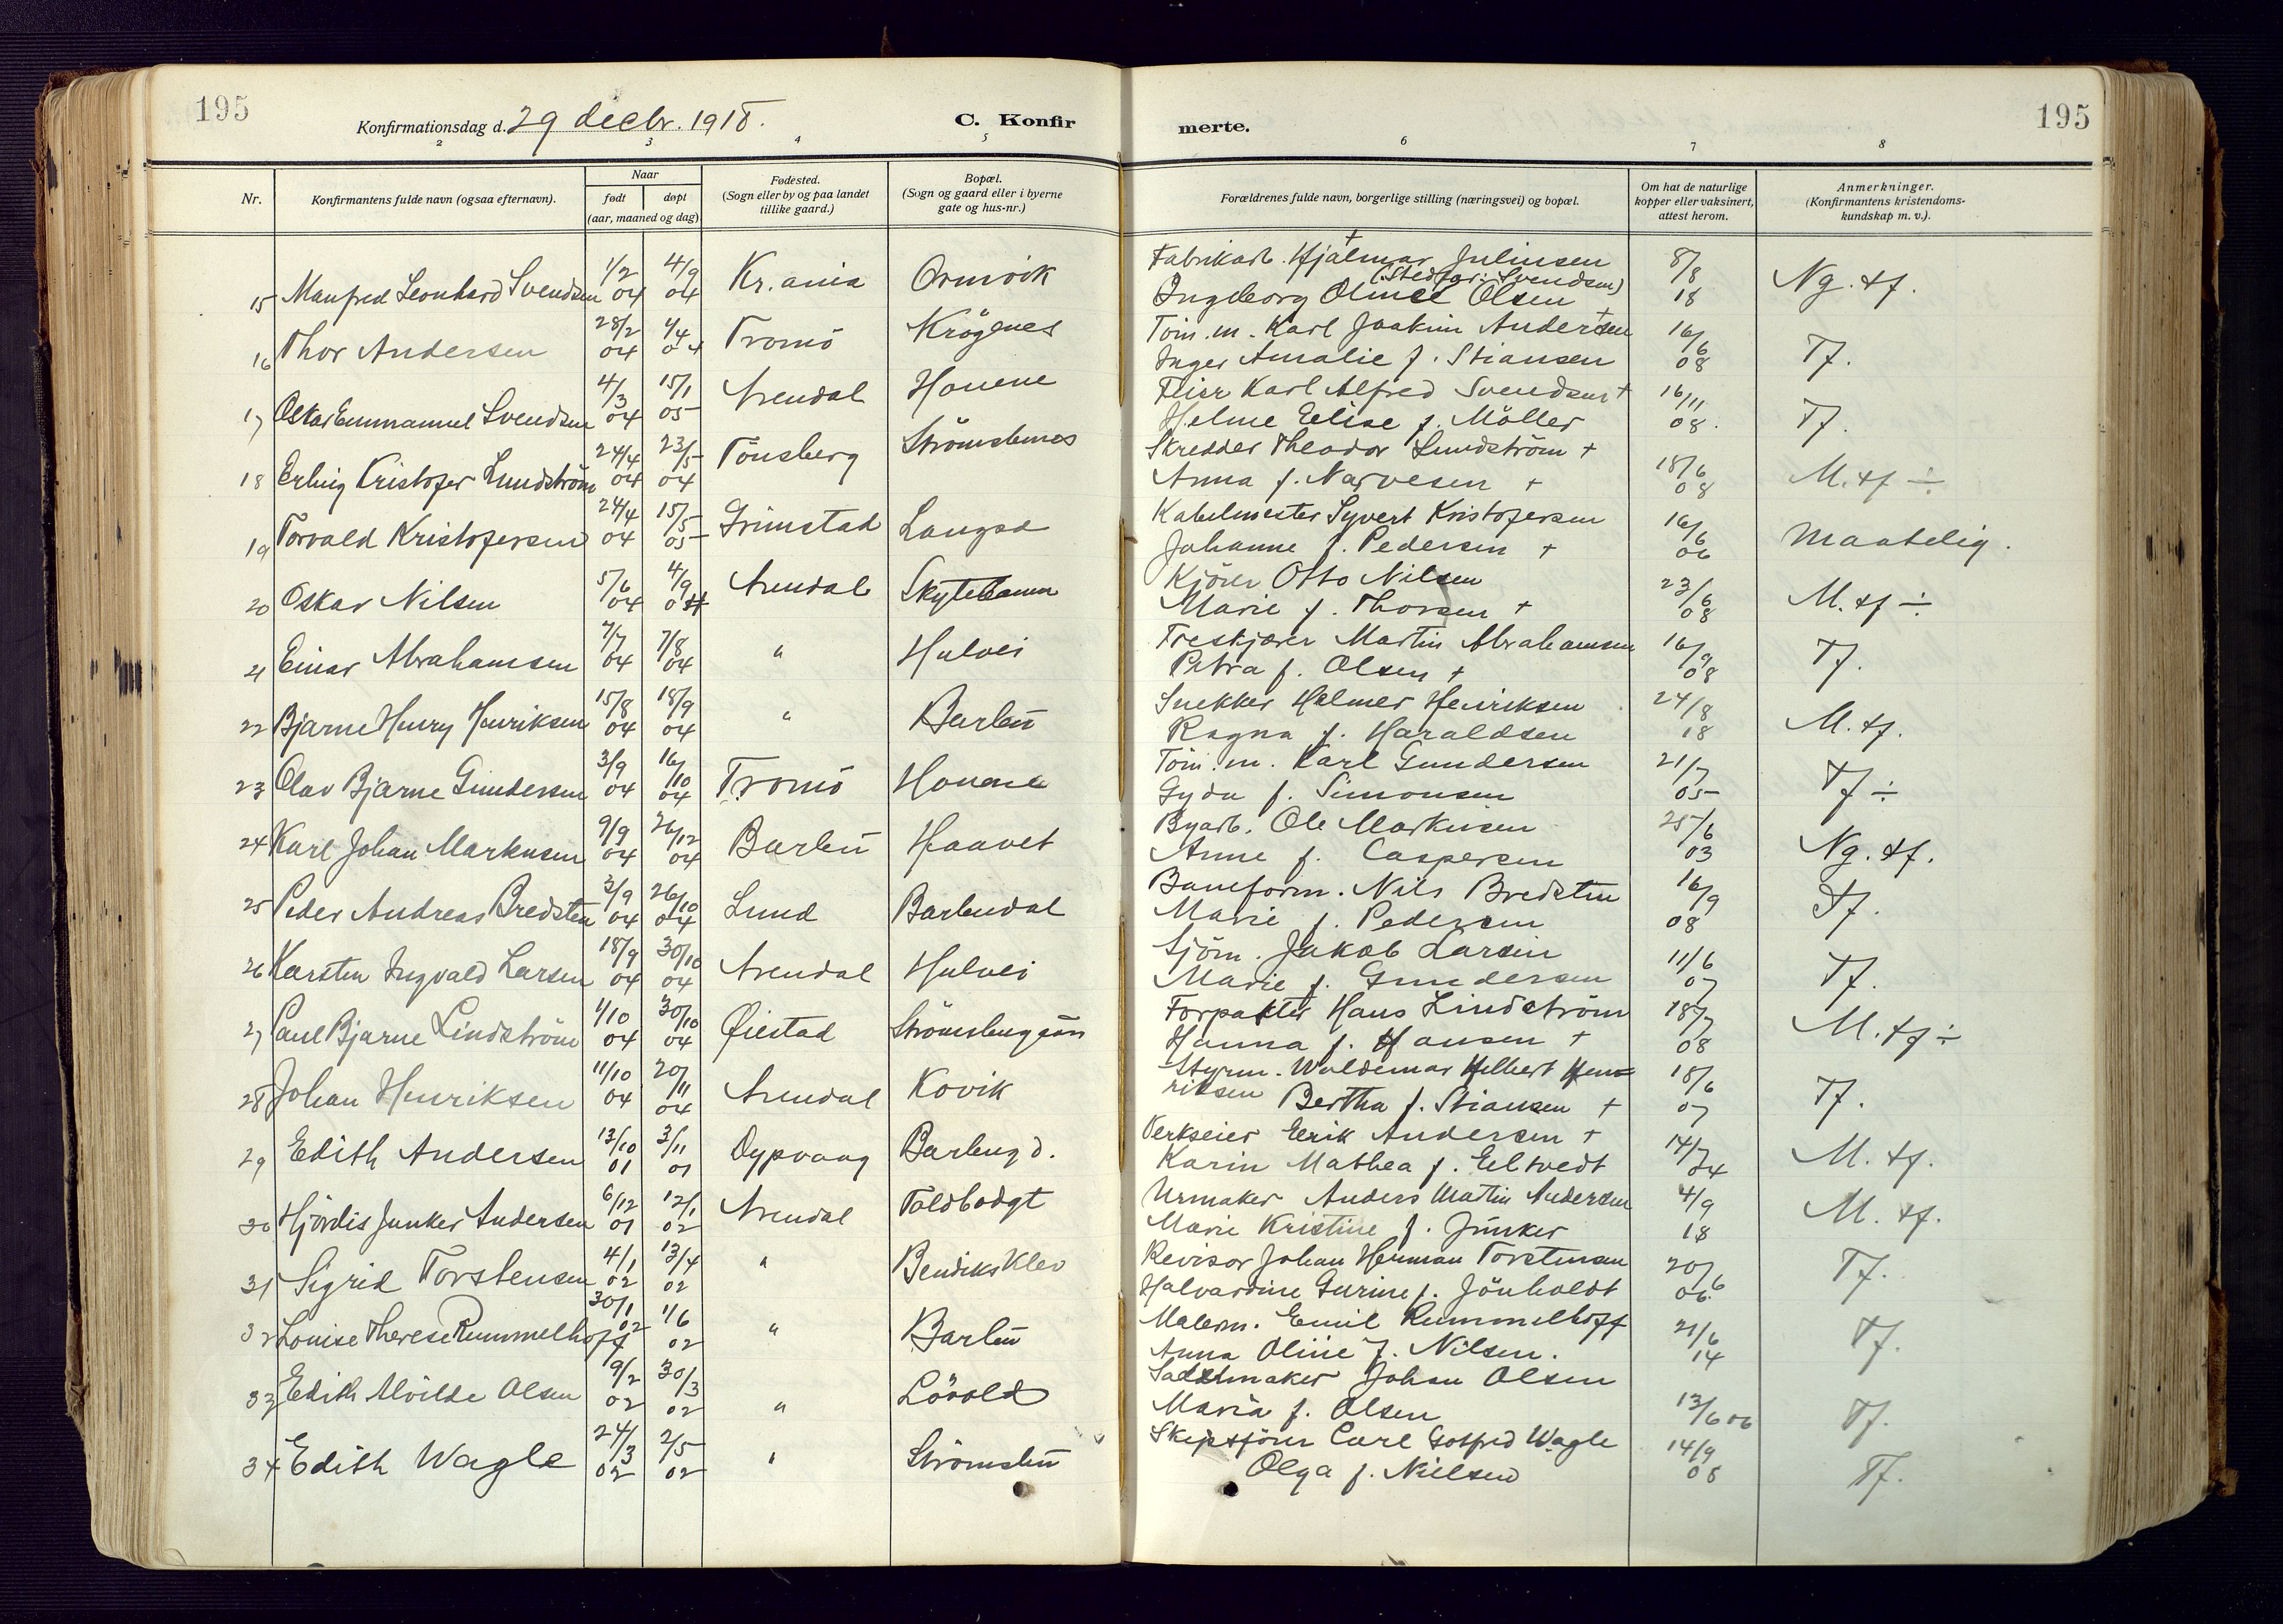 195
Konfirmationsdag d. 29 decbr. 1918.
C. Konfir
merte.
195
2 3 4 5 6 7 8
Nr.
Konfirmantens fulde navn (ogsaa efternavn).
Naar
født
døpt
(aar, maaned og dag)
Fødested.
(Sogn eller by og paa landet
tillike gaard.)
Bopæl.
(Sogn og gaard eller i byerne
gate og hus-nr.)
Forældrenes fulde navn, borgerlige stilling (næringsvei) og bopæl.
Om hat de naturlige
kopper eller vaksinert,
attest herom.
Anmerkninger.
(Konfirmantens kristendoms-
kundskap m. v.).
15 Manfred Leonhard Svendsen 1/2 04 4/9 04 Kr.ania Ormvik Fabrikarb. Hjalmar Juliusen + 8/8 18 Ng. tf.
(Stedfar: Svendsen)
Ingeborg Olsen
16 Thor Andersen 28/2 04 4/4 04 Tromö Krögenes Töm.m. Karl Joakim Andersen + 16/6 08 Tf.
Inger Amalie f. Stiansen
17 Oskar Emmanuel Svendsen 4/3 04 15/1 05 Arendal Houene Feier Karl Alfred Svendsen + 16/11 08. Tf.
Helme Elise f. Möller
18 Erling Kristofer Lundström 24/4 04 23/5 04 Tönsberg Strömsbunes Skredder Theodor Lundström + 18/6 08 M. tf ÷
Anna f. Narvesen +
19 Torvald Kristofersen 24/4 04 15/5 05 Grimstad Langsæ Kabelmester Syvert Kristofersen 16/6 06 Maatelig.
Johanne f. Pedersen +
20 Oskar Nilsen 5/6 04 4/9 04 Arendal Skytebanen Kjörer Otto Nilsen 23/6 08 M. tf ÷
Marie f. Thorsen +
21 Einar Abrahamsen 7/7 04 7/8 04 " Hulvei Treskjærer Martin Abrahamsen 16/9 08 Tf.
Petra f. Olsen +
22 Bjarne Henry Henriksen 15/8 04 18/9 04 " Barbu Snekker Halmer Henriksen 24/8 18 M. tf.
Ragna f. Haraldsen
23 Olav Bjarne Gundersen 3/9 04 16/10 04 Tromö Houene Töm.m. Karl Gundersen 21/7 05 Tf ÷
Gyda f. Simonsen
24 Karl Johan Markusen 9/9 04 26/12 04 Barbu Haavet Byarb. Ole Markusen 25/6 03 Ng. tf.
Anne f. Caspersen
25 Peder Andreas Bredsten 3/9 04 26/10 04 Lund Barbudal Baneform. Nils Bredsten 16/9 08 Tf.
Marie f. Pedersen
26 Karsten Ingvald Larsen 18/9 04 30/10 04 Arendal Hulvei Sjöm. Jakob Larsen 11/6 07 Tf.
Marie f. Gundersen
27 Paul Bjarne Lindström 1/10 04 30/10 04 Øiestad Strömsbugaan Forpakter Hans Lindström 18/7 08 M. tf ÷
Hanna f. Hansen +
28 Johan Henriksen 11/10 04 20/11 04 Arendal Kovik Styrm. Waldemar Helbert Hen=
riksen Bertha f. Stiansen + 18/6 07 Tf.
29 Edith Andersen 13/10 01 3/11 01 Dypvaag Barbugd. Verkseier Eerik Andersen + 14/7 24 M. tf.
Karin Mathea f. Eeltvedt
30 Hjördis Junker Andersen 6/12 01 12/1 02 Arendal Toldbodgt Urmaker Anders Martin Andersen 4/9 18 M. tf.
Marie Kristine f. Junker
31 Sigrid Torstensen 4/1 02 13/4 02 " Bendiks Klev Revisor Johan Herman Torstensen 20/6 06. Tf.
Halvardine Gurine f. Jönholdt
32 Louise Therese Rummelhoff 30/1 02 1/6 02 " Barbu Malerm. Emil Rummelhoff 21/6 14 Tf.
Anna Oline f. Nilsen.
33 Edith Alvilde Olsen 9/2 02 30/3 02 " Lövold Sadelmaker Johan Olsen 13/6 06 Tf.
Maria f. Olsen
34 Edith Wagle 24/3 02 2/5 02 " Strömsbu Skipsförer Carl Gotfred Wagle 14/9 08 Tf.
Olga f. Nielsen